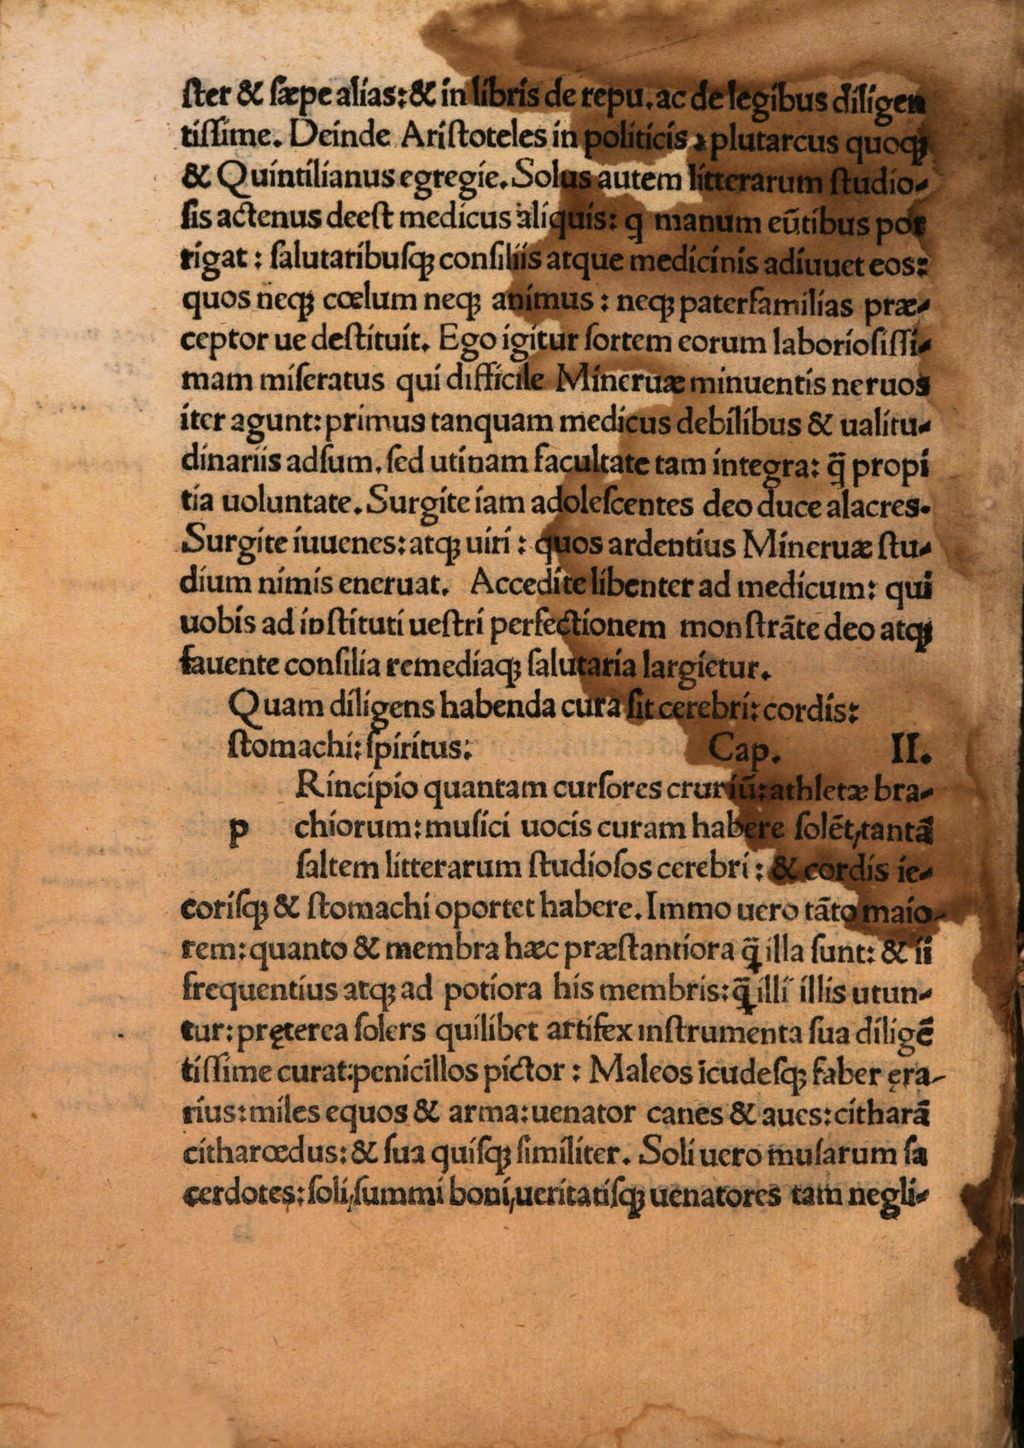 ſter & ſæpe alias:& in libris de repu. ac de legibus diligen
tiſſime. Deinde Ariſtoteles in politicis ꝛ plutarcus quoqꝫ
& Quintilianus egregie. Solus autem litterarum ſtudio-
ſis actenus deeſt medicus aliquis: q manum eũtibus por
rigat: ſalutaribuſqꝫ conſiliis atque medicinis adiuuet eos:
quos neqꝫ cœlum neqꝫ animus: neqꝫ paterfamilias præ-
ceptor ue deſtituit. Ego igitur ſortem eorum laborioſiſſi-
mam miſeratus qui difficile Mineruæ minuentis neruos
iter agunt: primus tanquam medicus debilibus & ualitu-
dinariis adſum. ſed utinam facultate tam integra: q̃ propi
tia uoluntate. Surgite iam adoleſcentes deo duce alacres.
Surgite iuuenes: atqꝫ uiri: quos ardentius Mineruæ ſtu-
dium nimis eneruat. Accedite libenter ad medicum: qui
uobis ad inſtituti ueſtri perfectionem monſtrãte deo atqꝫ
fauente conſilia remediaqꝫ ſalutaria largietur.
Quam diligens habenda cura ſit cerebri: cordis:
ſtomachi: ſpiritus: Cap. II.
Rincipio quantam curſores cruriũ: athletæ bra-
p chiorum: muſici uocis curam habere ſolẽt, tantã
ſaltem litterarum ſtudioſos cerebri: & cordis ie-
coriſqꝫ & ſtomachi oportet habere. Immo uero tãto maio-
rem: quanto & membra hæc præſtantiora q̃ illa ſunt: & ii
frequentius atqꝫ ad potiora his membris: q̃ illi illis utun-
tur: pręterea ſolers quilibet artifex inſtrumenta ſua diligẽ
tiſſime curat: penicillos pictor: Maleos icudeſqꝫ faber ęra-
rius: miles equos & arma: uenator canes & aues: citharã
citharœdus: & ſua quiſqꝫ ſimiliter. Soli uero muſarum ſa
cerdotes: ſoli, ſummi boni, ueritatiſqꝫ uenatores tam negli-